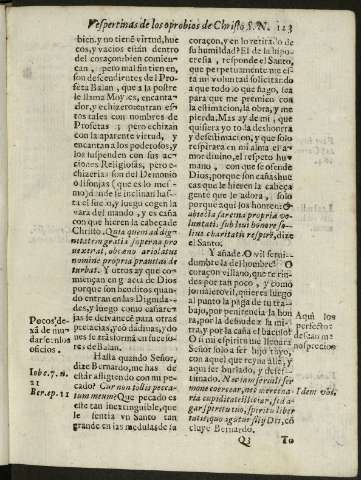 Vespertinas de los oprobios de Christo S. N. 123
bien, y no tiene virtud, hue
cos, y vacios estàn dentro
del coraçon: bien comien-
can, pero mal sin tienen,
son descendientes del Pro
feta Balan, que a la postre
le llama Moyses, encanta-
dor, y echizero: entran es-
tos tales con nombres de
Profetas; pero echizan
con la aparente virtud, y
encantan a los poderosos, y
los suspenden con sus ac
ciones Religiosas, pero e-
chizerias son del Demonio
o lisonjas (que es lo mes-
mo) donde se inclinan has-
ta el suelo, y luego cogen la
vara del mando, y es caña
con que hieren la cabeça de
Christo. Quia quem ad dig-
nitatem gratia superna pro
uexerat, obcœno ariolatus
nomine propria prauitas de
turbat. Y otros ay que co-
miençan en gracia de Dios
porque son benditos quan-
do entran en las Dignida-
des, y luego como cañare-
jas se desvanecē para otras
prelacias, y no dadimas, y do
nes se trastornan porque to
do es de vacio.
Hasta quando Señor,
dize Bernardo, me has de
estar afligiendo con mi pe
cado? Cur non tollis pecca-
tum meum? Que pecado es
este tan inextinguible, que
le sentia vn Santo tan
grande en las medulas de la
Pocos dexà de mudarse en los oficios.
Iob c. 7. n. 21
Ber. ep. 11
coraçon, y en lo retirado de
su humildad? El de la hipo-
cresia, responde el Santo,
que perpetuamente me es-
tà mi voluntad solicitando
a que todo lo que hago, sea
para que me premien con
la estimacion, la obra, y me
pierda. Mas ay de mi, que
quisiera yo to la deshonra
y desestimacion, y que solo
respirara en mi alma el a-
mor diuino, el respeto hu-
mano, con que se ofende
Dios, porque son cañas hue
cas que le hieren la cabeça
gente que le adora, solo
porque aqui los honren: O
abiecta faretra propria vo-
luntati, sub lui honore so-
lius charitatis respirē, dize
el Santo.
Y añade. O vil serui-
dumbre la del hombre! O
coraçon villano, que te rin-
des por tan poco, y como
jornalero vil, quieres luego
al punto la paga de tu tra-
bajo, por penitencia la hon
ra, por la disciplina la mi-
tra, y por la caña el baculo!
O si mi espiritu me lleuàra
Señor solo a ser hijo tuyo,
con aquel que reyna alli, y
aqui ser burlado, y deses-
timado. Ne iam seruili ser
more coercear, nec mercena-
ria cupiditate sollicitar, sed a-
gar spiritu tuo, spiritu liber
tatis, quo agitur filij Dei, cō
cluye Bernardo.
Aqui los perfectos
Idem vbi,
Q3 To